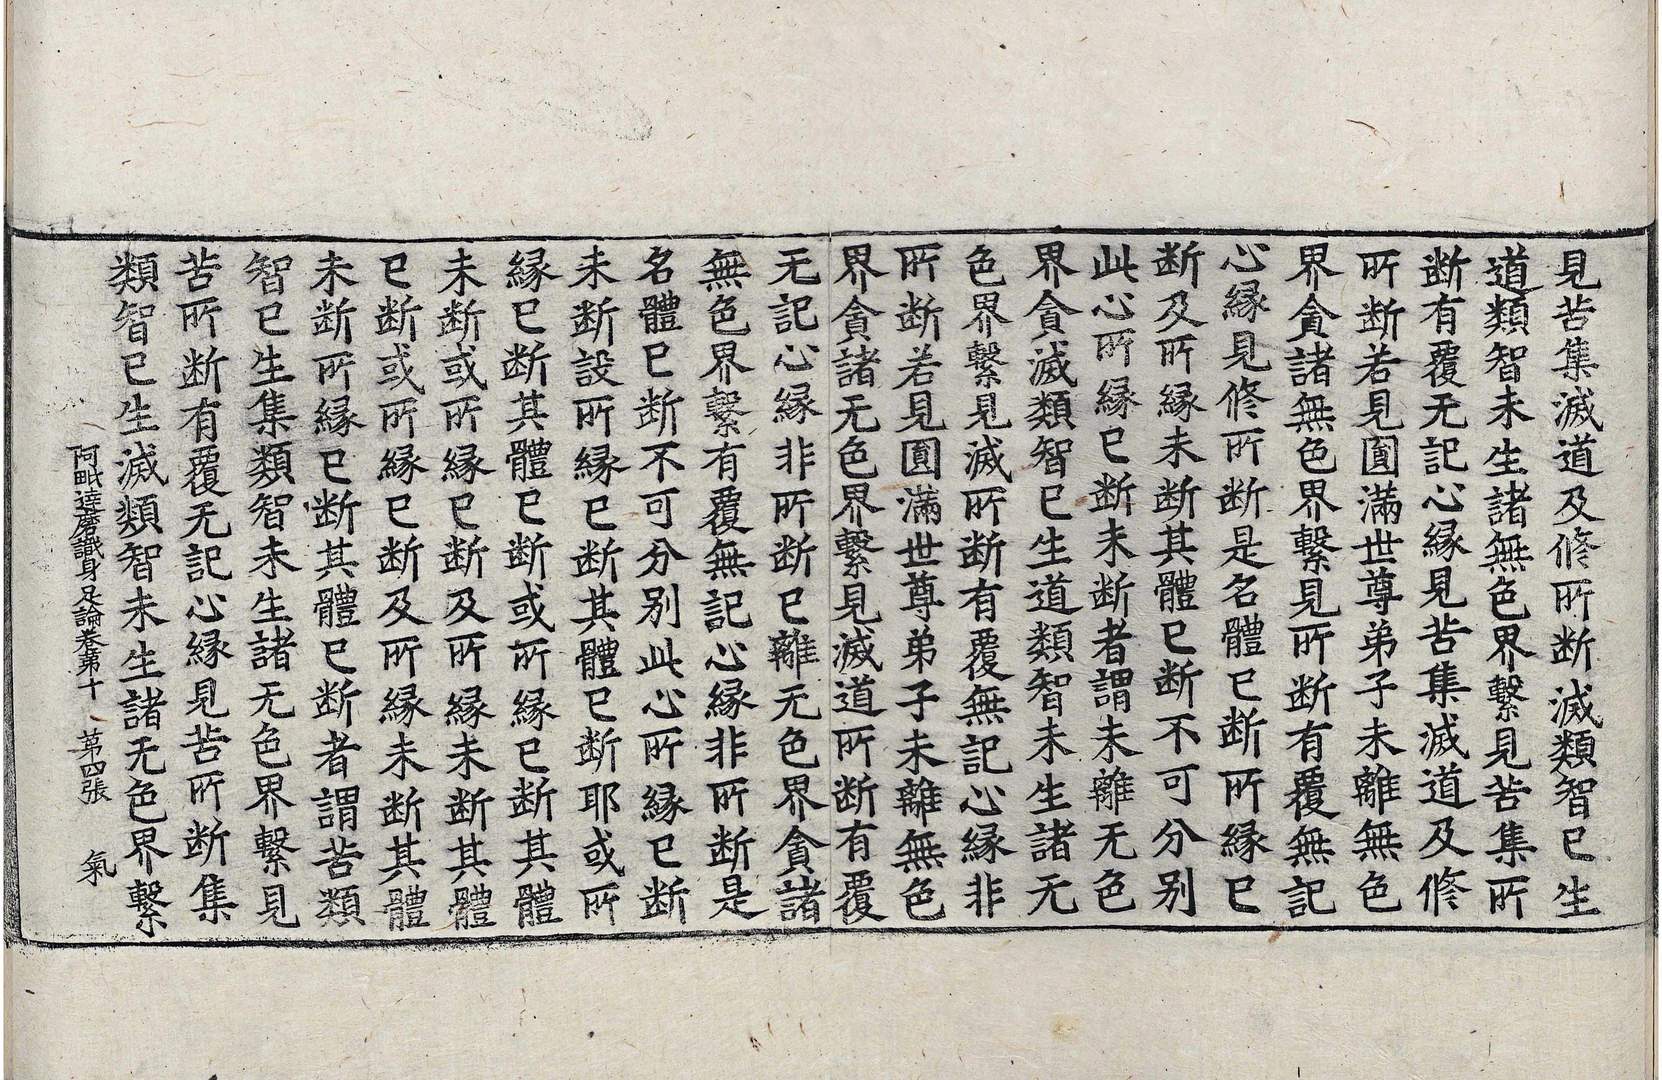 見苦集滅道及修所断滅類智已生
道類智未生諸無色界繫見苦集所
断有覆无記心縁見苦集滅道及修
所断若見圓滿世尊弟子未離無色
界貪諸無色界繫見所断有覆無記
心縁見修所断是名體已断所縁已
断及所縁未断其體已断不可分别
此心所縁已断未断者謂未離无色
界貪滅類智已生道類智未生諸无
色界繫見滅所断有覆無記心縁非
所断若見圓滿世尊弟子未離無色
界貪諸无色界繫見滅道所断有覆
无記心縁非所断已離无色界貪諸
無色界繫有覆無記心縁非所断是
名體已断不可分别此心所縁已断
未断設所縁已断其體已断耶或所
縁已断其體已断或所縁已断其體
未断或所縁已断及所縁未断其體
已断或所縁已断及所縁未断其體
未断所縁已断其體已断者謂苦類
智已生集類智未生諸无色界繫見
苦所断有覆无記心縁見苦所断集
類智已生滅類智未生諸无色界繫
阿毗達磨識身足論卷第十 第四張 氣